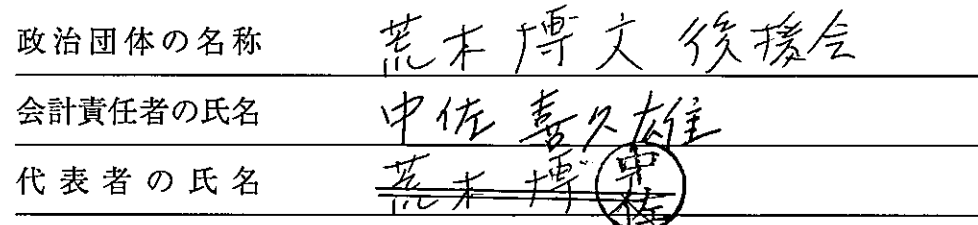 政治団体の名称 荒木博文後援会
会計責任者の氏名 中佐喜久雄
代表者の氏名 荒木博 中佐